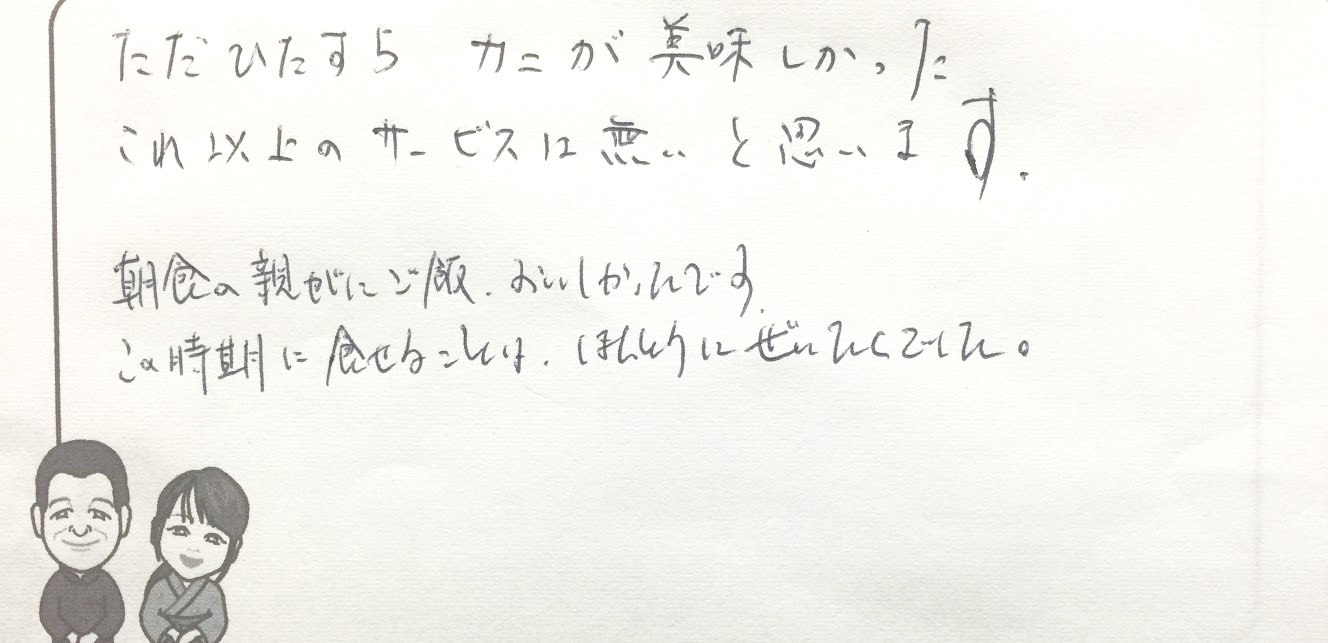 ただひたすら カニが美味しかった
これ以上のサービスは無いと思います.
朝食の親がにご飯、おいしかったです.
この時期に食せることは、ほんとうにぜいたくでした。